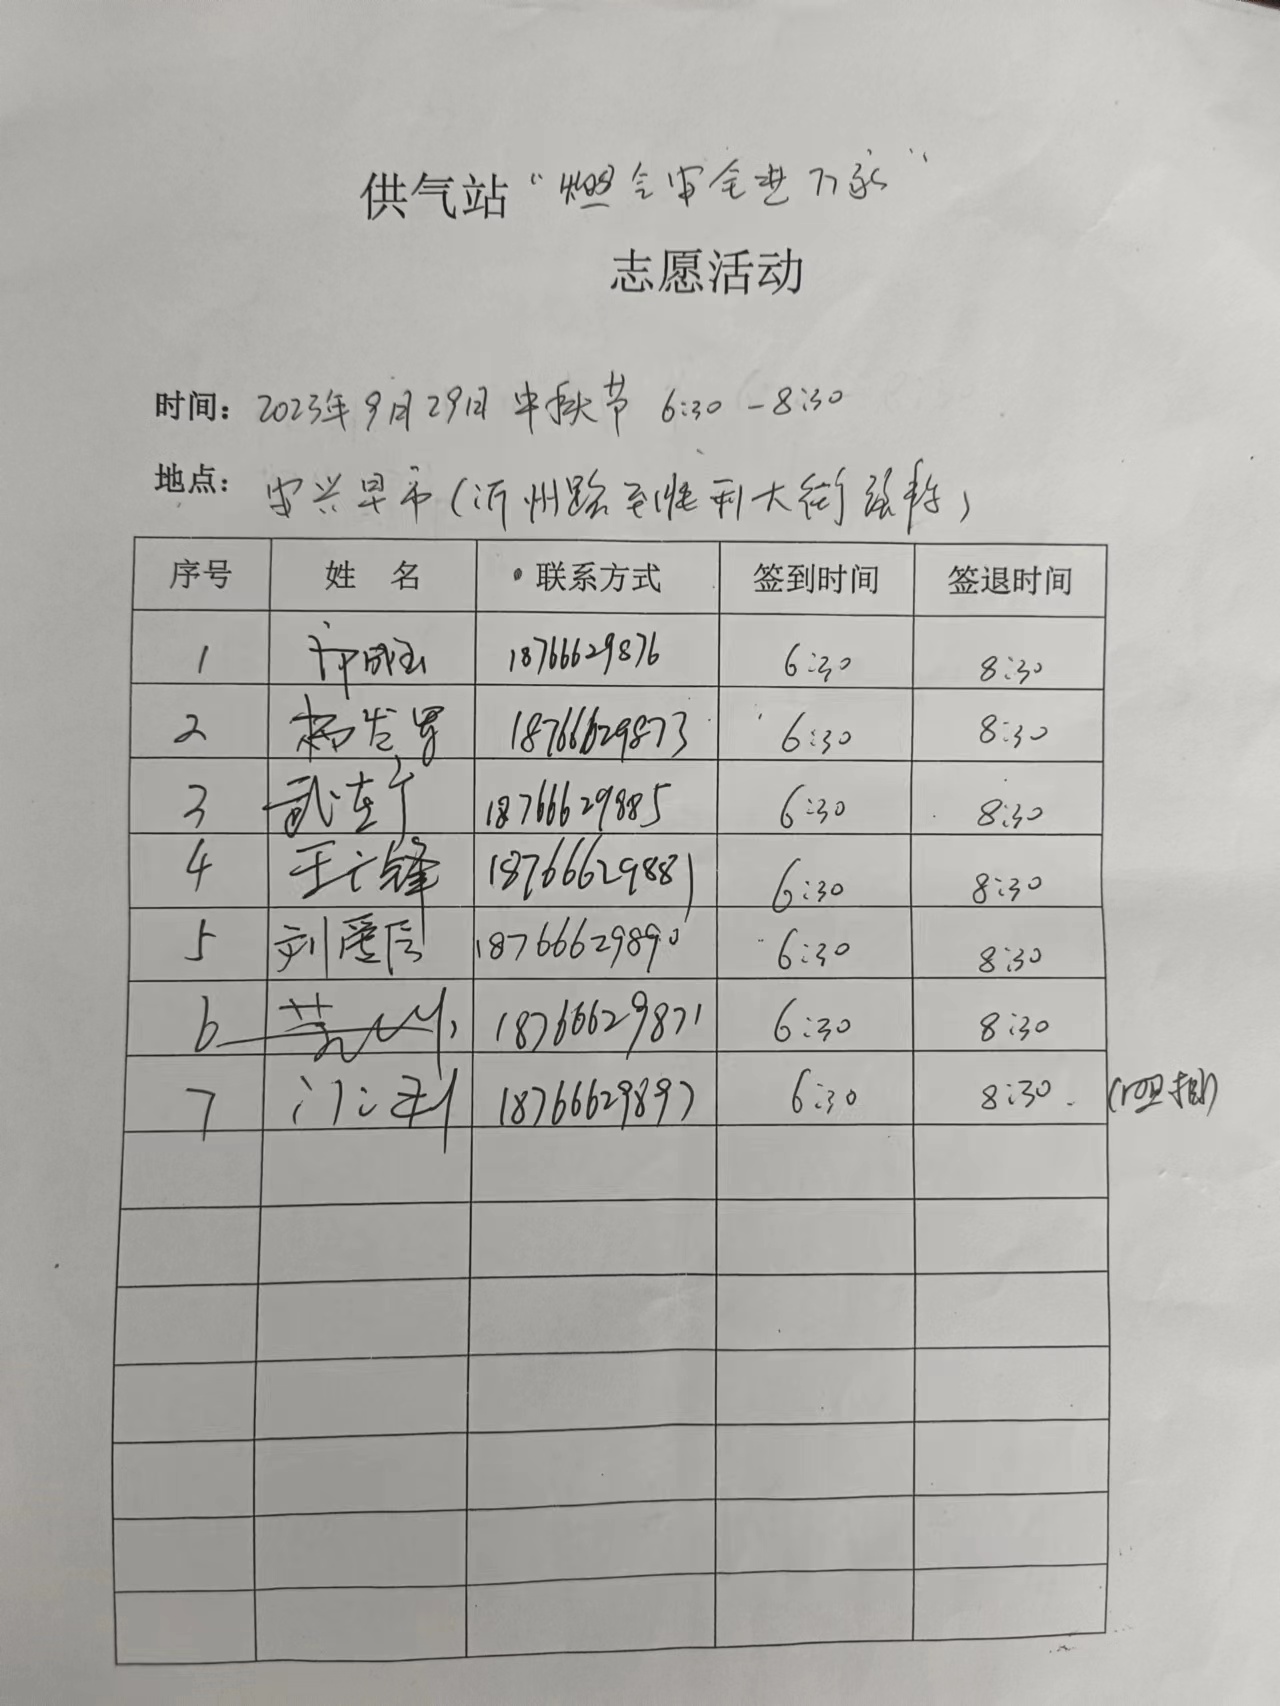 供气站“燃气安全进万家”
志愿活动
时间：2023年9月29日 中秋节 6:30-8:30
地点：安兴早市(沂州路至胜利大街
序号 姓 名 联系方式 签到时间 签退时间
1 18766629876 6:30 8:30
2 杨发军 18766629873 6:30 8:30
3 武在 18766629885 6:30 8:30
4 王广锋 18766629881 6:30 8:30
5 刘爱臣 18766629890 6:30 8:30
6 18766629871 6:30 8:30
7 门江利 18766629897 6:30 8:30. (照相)